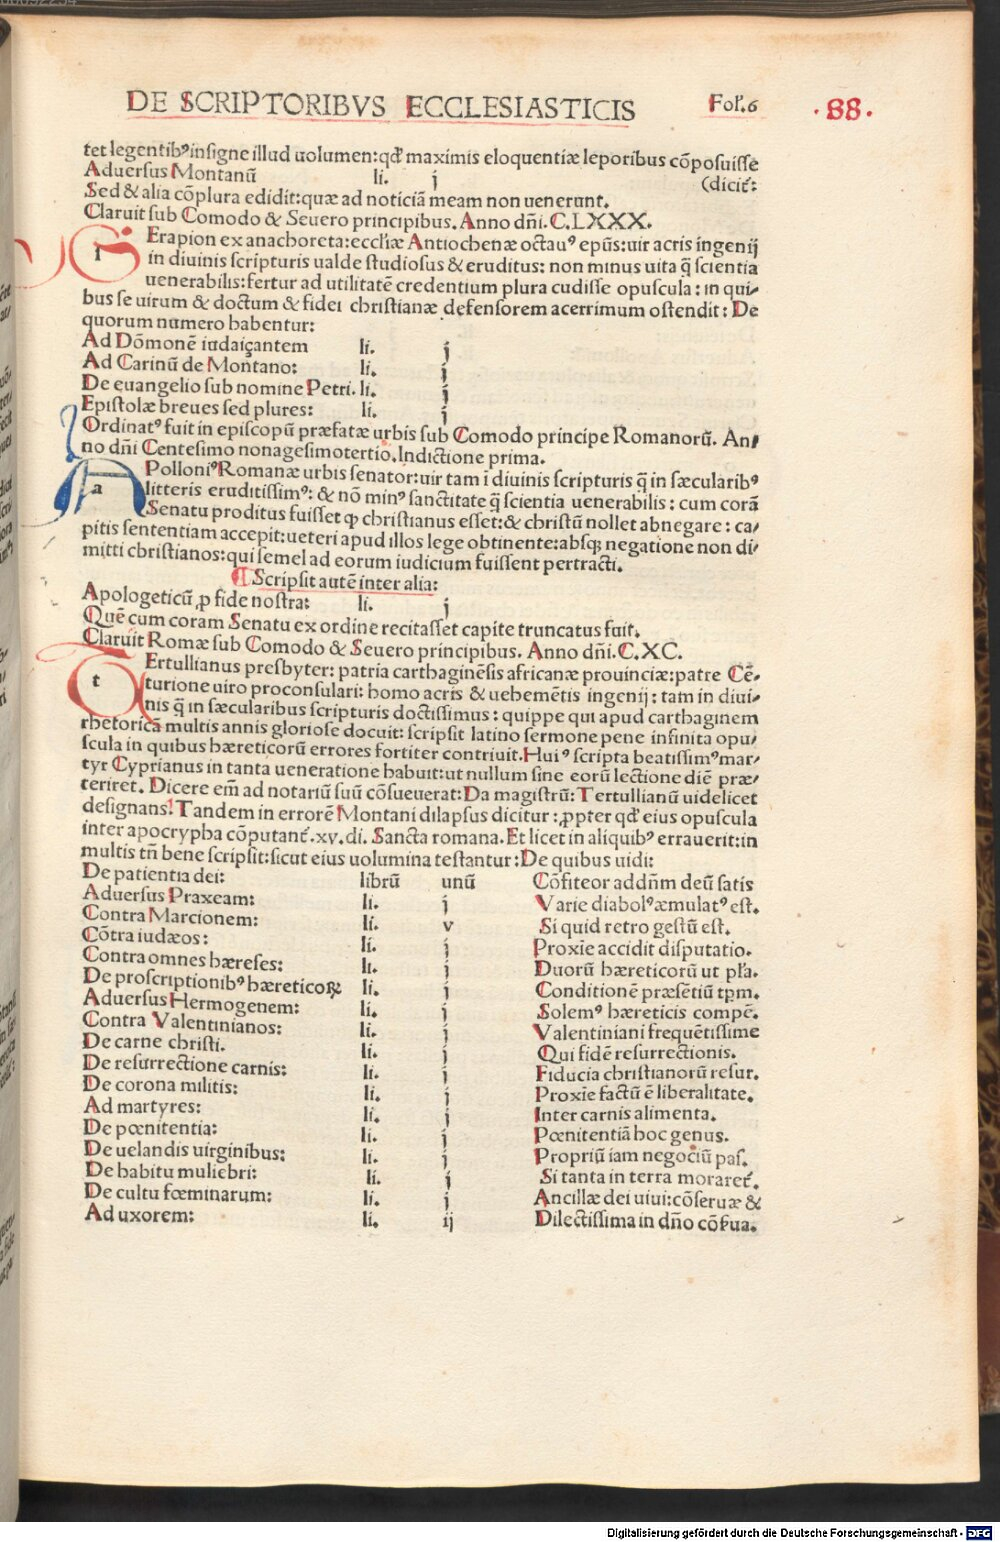 DE SCRIPTORIBVS ECCLESIASTICIS Fol.6 .88.
tet legentibꝰ insigne illud uolumen: qđ maximis eloquentiæ leporibus cōposuisse
Aduersus Montanū li. j (dicit̄:
Sed & alia cōplura edidit: quæ ad noticiā meam non uenerunt.
Claruit sub Comodo & Seuero principibus. Anno dñi. C.LXXX.
SErapion ex anachoreta: eccl'iæ Antiochenæ octauꝰ epūs: uir acris ingenij
in diuinis scripturis ualde studiosus & eruditus: non minus uita q̄ scientia
uenerabilis: fertur ad utilitatē credentium plura cudisse opuscula: in qui/
bus se uirum & doctum & fidei christianæ defensorem acerrimum ostendit: De
quorum numero habentur:
Ad Dōmonē iudaiçantem li. j
Ad Carinū de Montano: li. j
De euangelio sub nomine Petri. li. j
Epistolæ breues sed plures: li. j
Ordinatꝰ fuit in episcopū præfatæ urbis sub Comodo principe Romanorū. An/
no dñi Centesimo nonagesimotertio. Indictione prima.
APolloniꝰ Romanæ urbis senator: uir tam ī diuinis scripturis q̄ in sæcularibꝰ
litteris eruditissimꝰ: & nō minꝰ sanctitate q̄ scientia uenerabilis: cum corā
Senatu proditus fuisset ꝙ christianus esset: & christū nollet abnegare: ca/
pitis sententiam accepit: ueteri apud illos lege obtinente: absqꝫ negatione non di/
mitti christianos: qui semel ad eorum iudicium fuissent pertracti.
¶Scripsit autē inter alia:
Apologeticū ꝓ fide nostra: li. j
Quē cum coram Senatu ex ordine recitasset capite truncatus fuit.
Claruit Romæ sub Comodo & Seuero principibus. Anno dñi. C.XC.
TErtullianus presbyter: patria carthaginēsis africanæ prouinciæ: patre Cē/
turione uiro proconsulari: homo acris & uehemētis ingenij: tam in diui/
nis q̄ in sæcularibus scripturis doctissimus: quippe qui apud carthaginem
rhetoricā multis annis gloriose docuit: scripsit latino sermone pene infinita opu/
scula in quibus hæreticorū errores fortiter contriuit. Huiꝰ scripta beatissimꝰ mar/
tyr Cyprianus in tanta ueneratione habuit: ut nullum sine eorū lectione diē præ/
teriret. Dicere em̄ ad notariū suū cōsueuerat: Da magistrū: Tertullianū uidelicet
designans! Tandem in errorē Montani dilapsus dicitur: ꝓpter qđ eius opuscula
inter apocrypha cōputant̄. xv. di. Sancta romana. Et licet in aliquibꝰ errauerit: in
multis tñ bene scripsit: sicut eius uolumina testantur: De quibus uidi:
De patientia dei: librū unū Cōfiteor ad dñm deū satis
Aduersus Praxeam: li. j Varie diabolꝰ æmulatꝰ est.
Contra Marcionem: li. v Si quid retro gestū est.
Cōtra iudæos: li. j Proxie accidit disputatio.
Contra omnes hæreses: li. j Duorū hæreticorū ut pl'a.
De proscriptionibꝰ hæreticoꝝ li. j Conditionē præsētiū tpm.
Aduersus Hermogenem: li. j Solemꝰ hæreticis compē.
Contra Valentinianos: li. j Valentiniani frequētissime
De carne christi. li. j Qui fidē resurrectionis.
De resurrectione carnis: li. j Fiducia christianorū resur.
De corona militis: li. j Proxīe factū ē liberalitate.
Ad martyres: li. j Inter carnis alimenta.
De pœnitentia: li. j Pœnitentiā hoc genus.
De uelandis uirginibus: li. j Propriū iam negociū pas.
De habitu muliebri: li. j Si tanta in terra moraret̄.
De cultu fœminarum: li. j Ancillæ dei uiui: cōseruæ &
Ad uxorem: li. ij Dilectissima in dño cōsua.
Digitalisierung gefördert durch die Deutsche Forschungsgemeinschaft - DFG